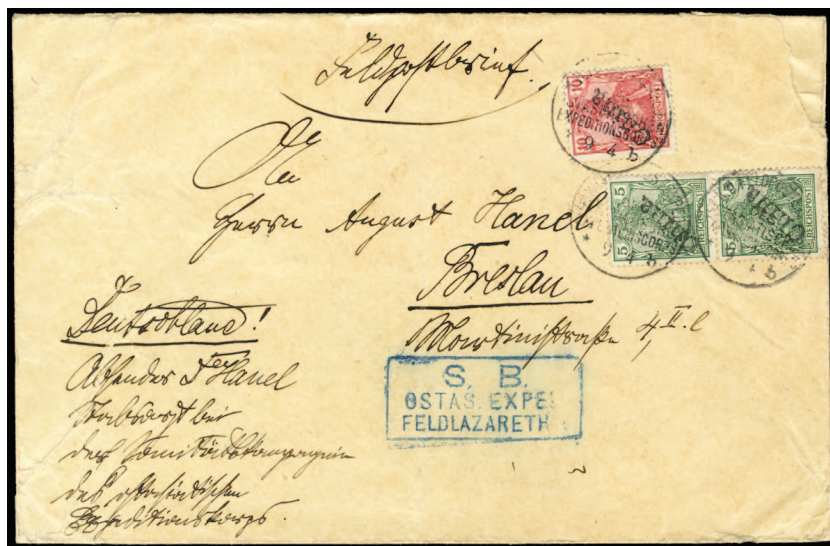 Feldpostbrief.
An
Herrn August Hanel
Breslau
Martinistraße 4, II. l
Deutschland!
Absender Dr Hanel
Stabsarzt bei
der Sanitätskompagnie
des ostasiatischen
Expeditionskorps.
S. B.
OSTAS. EXPE
FELDLAZARETH
10
10
China
EXPEDITIONS
9 4 b
5
5
REICHSPOST
China
5
REICHSPOST
China
b